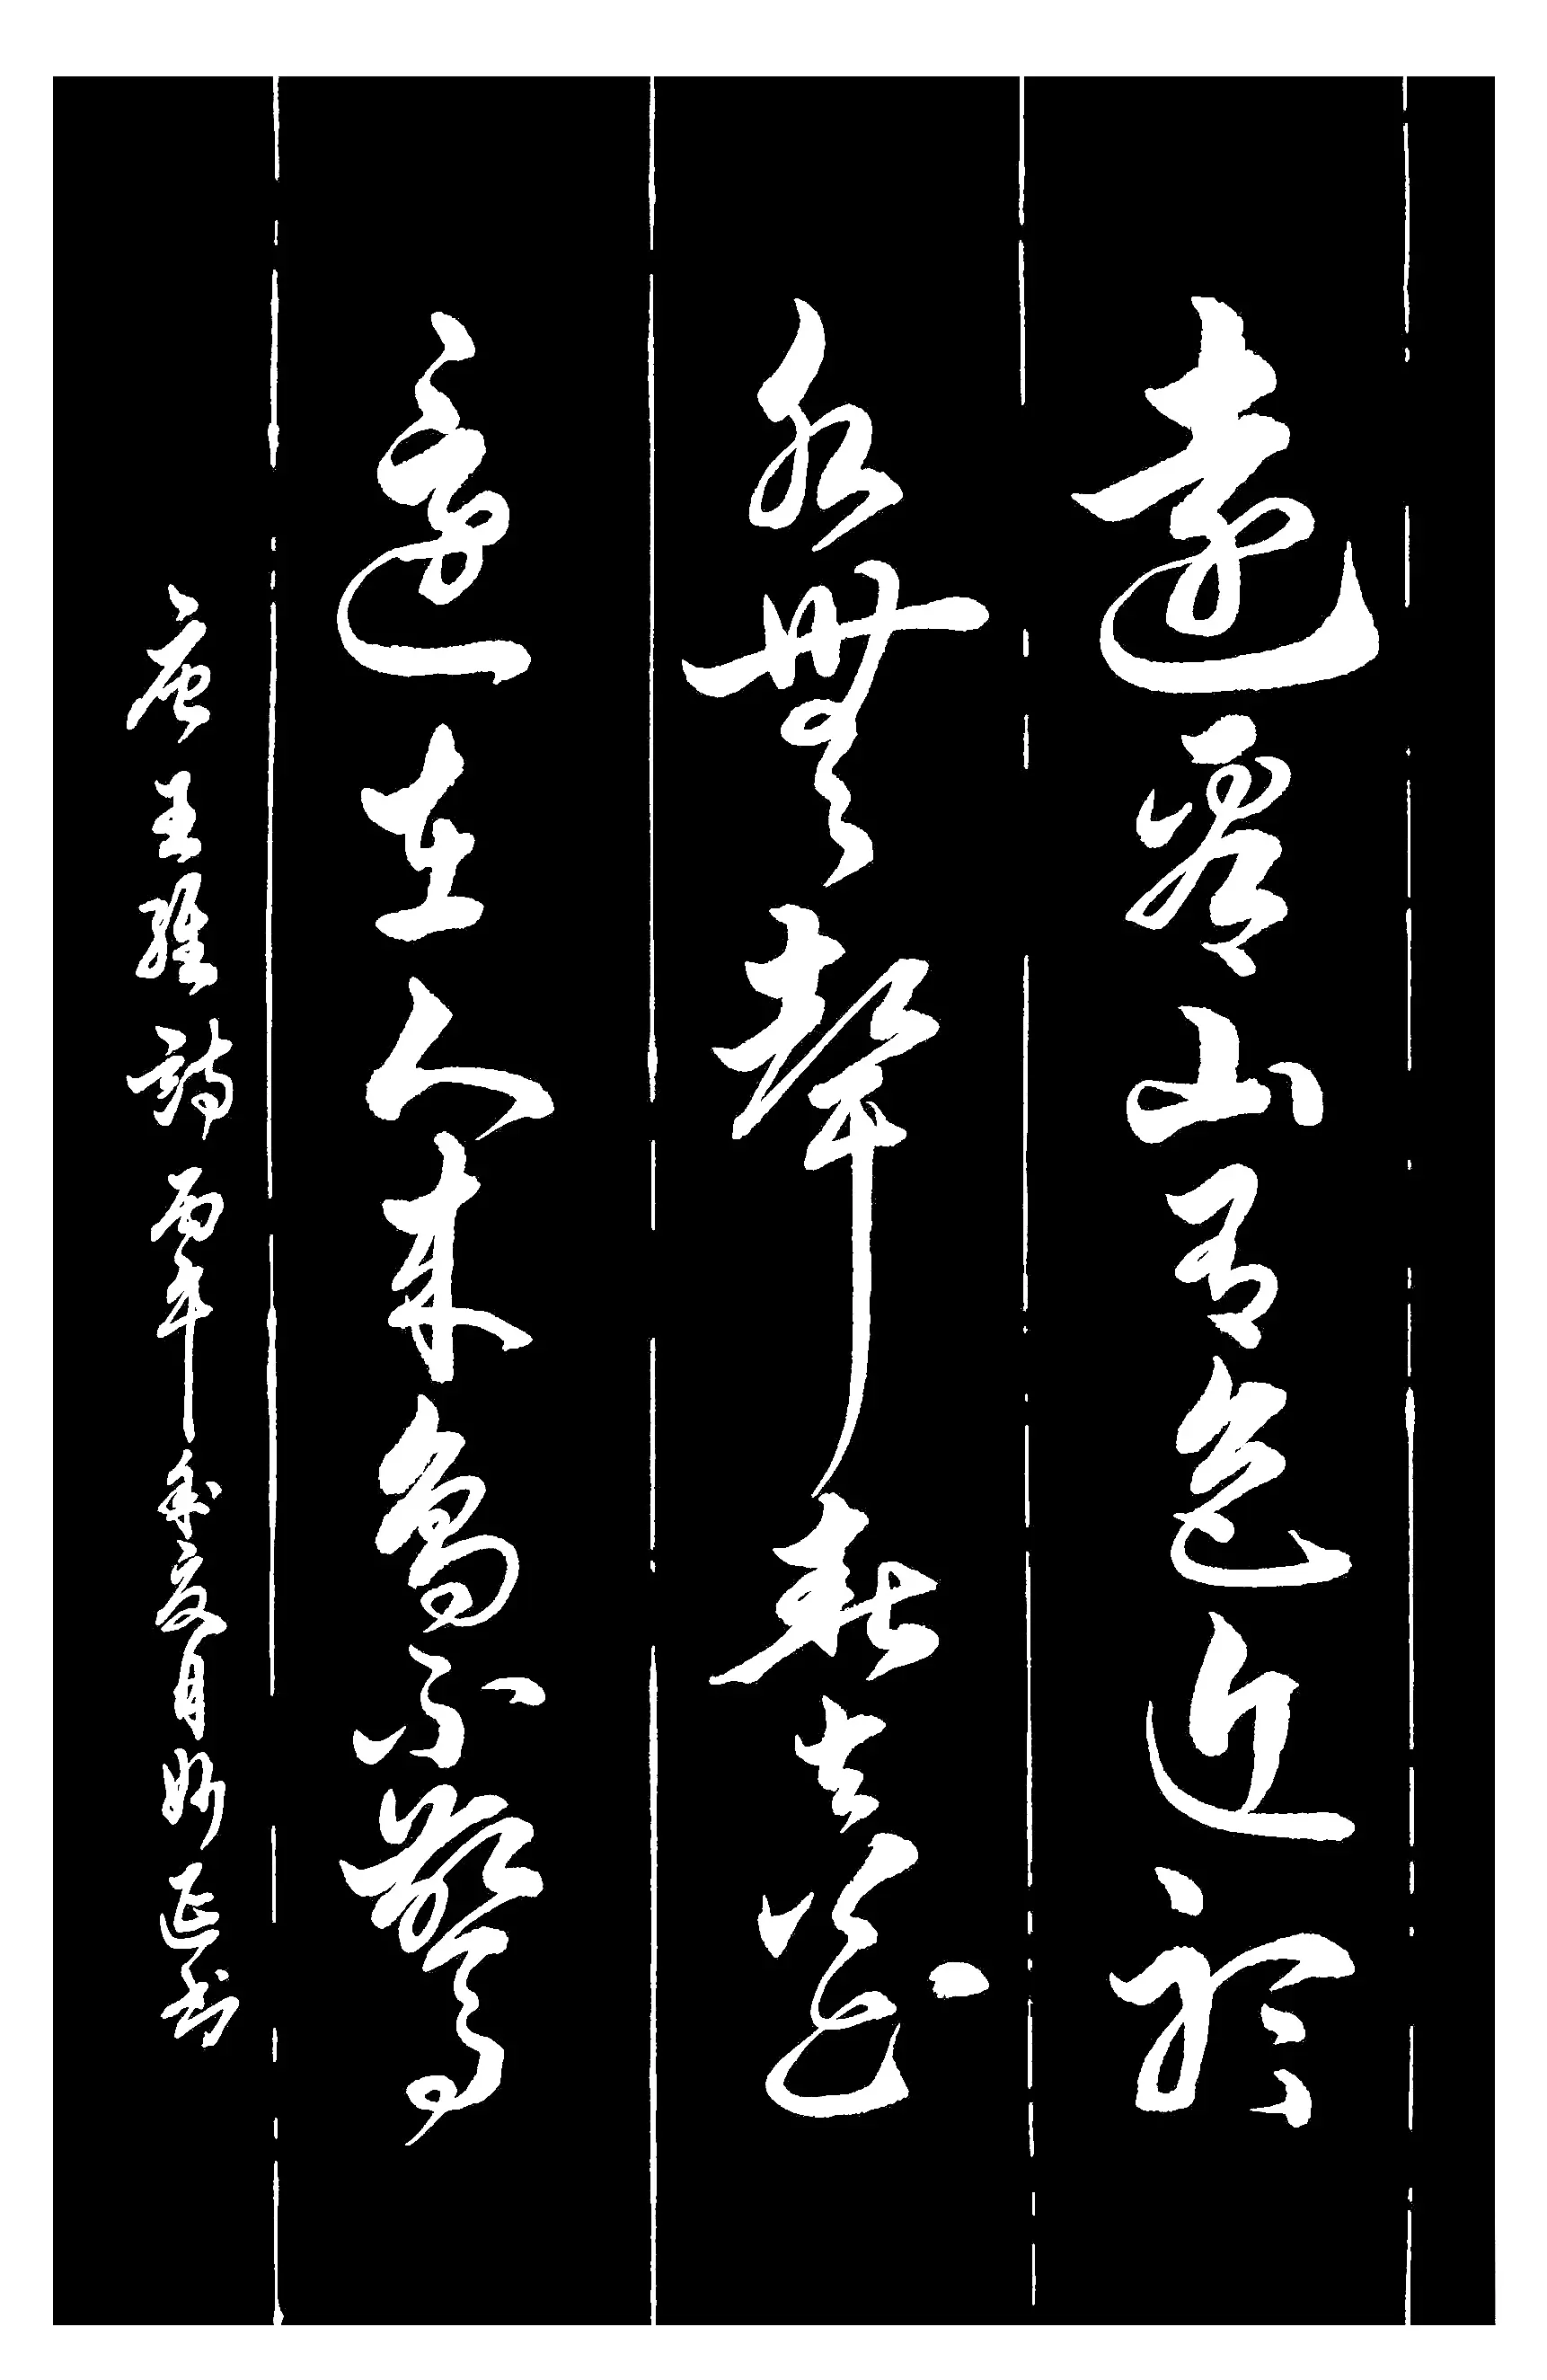 遠看山有色近聽
水無聲春去花
還在人來鳥不驚
唐王維詩夏月書